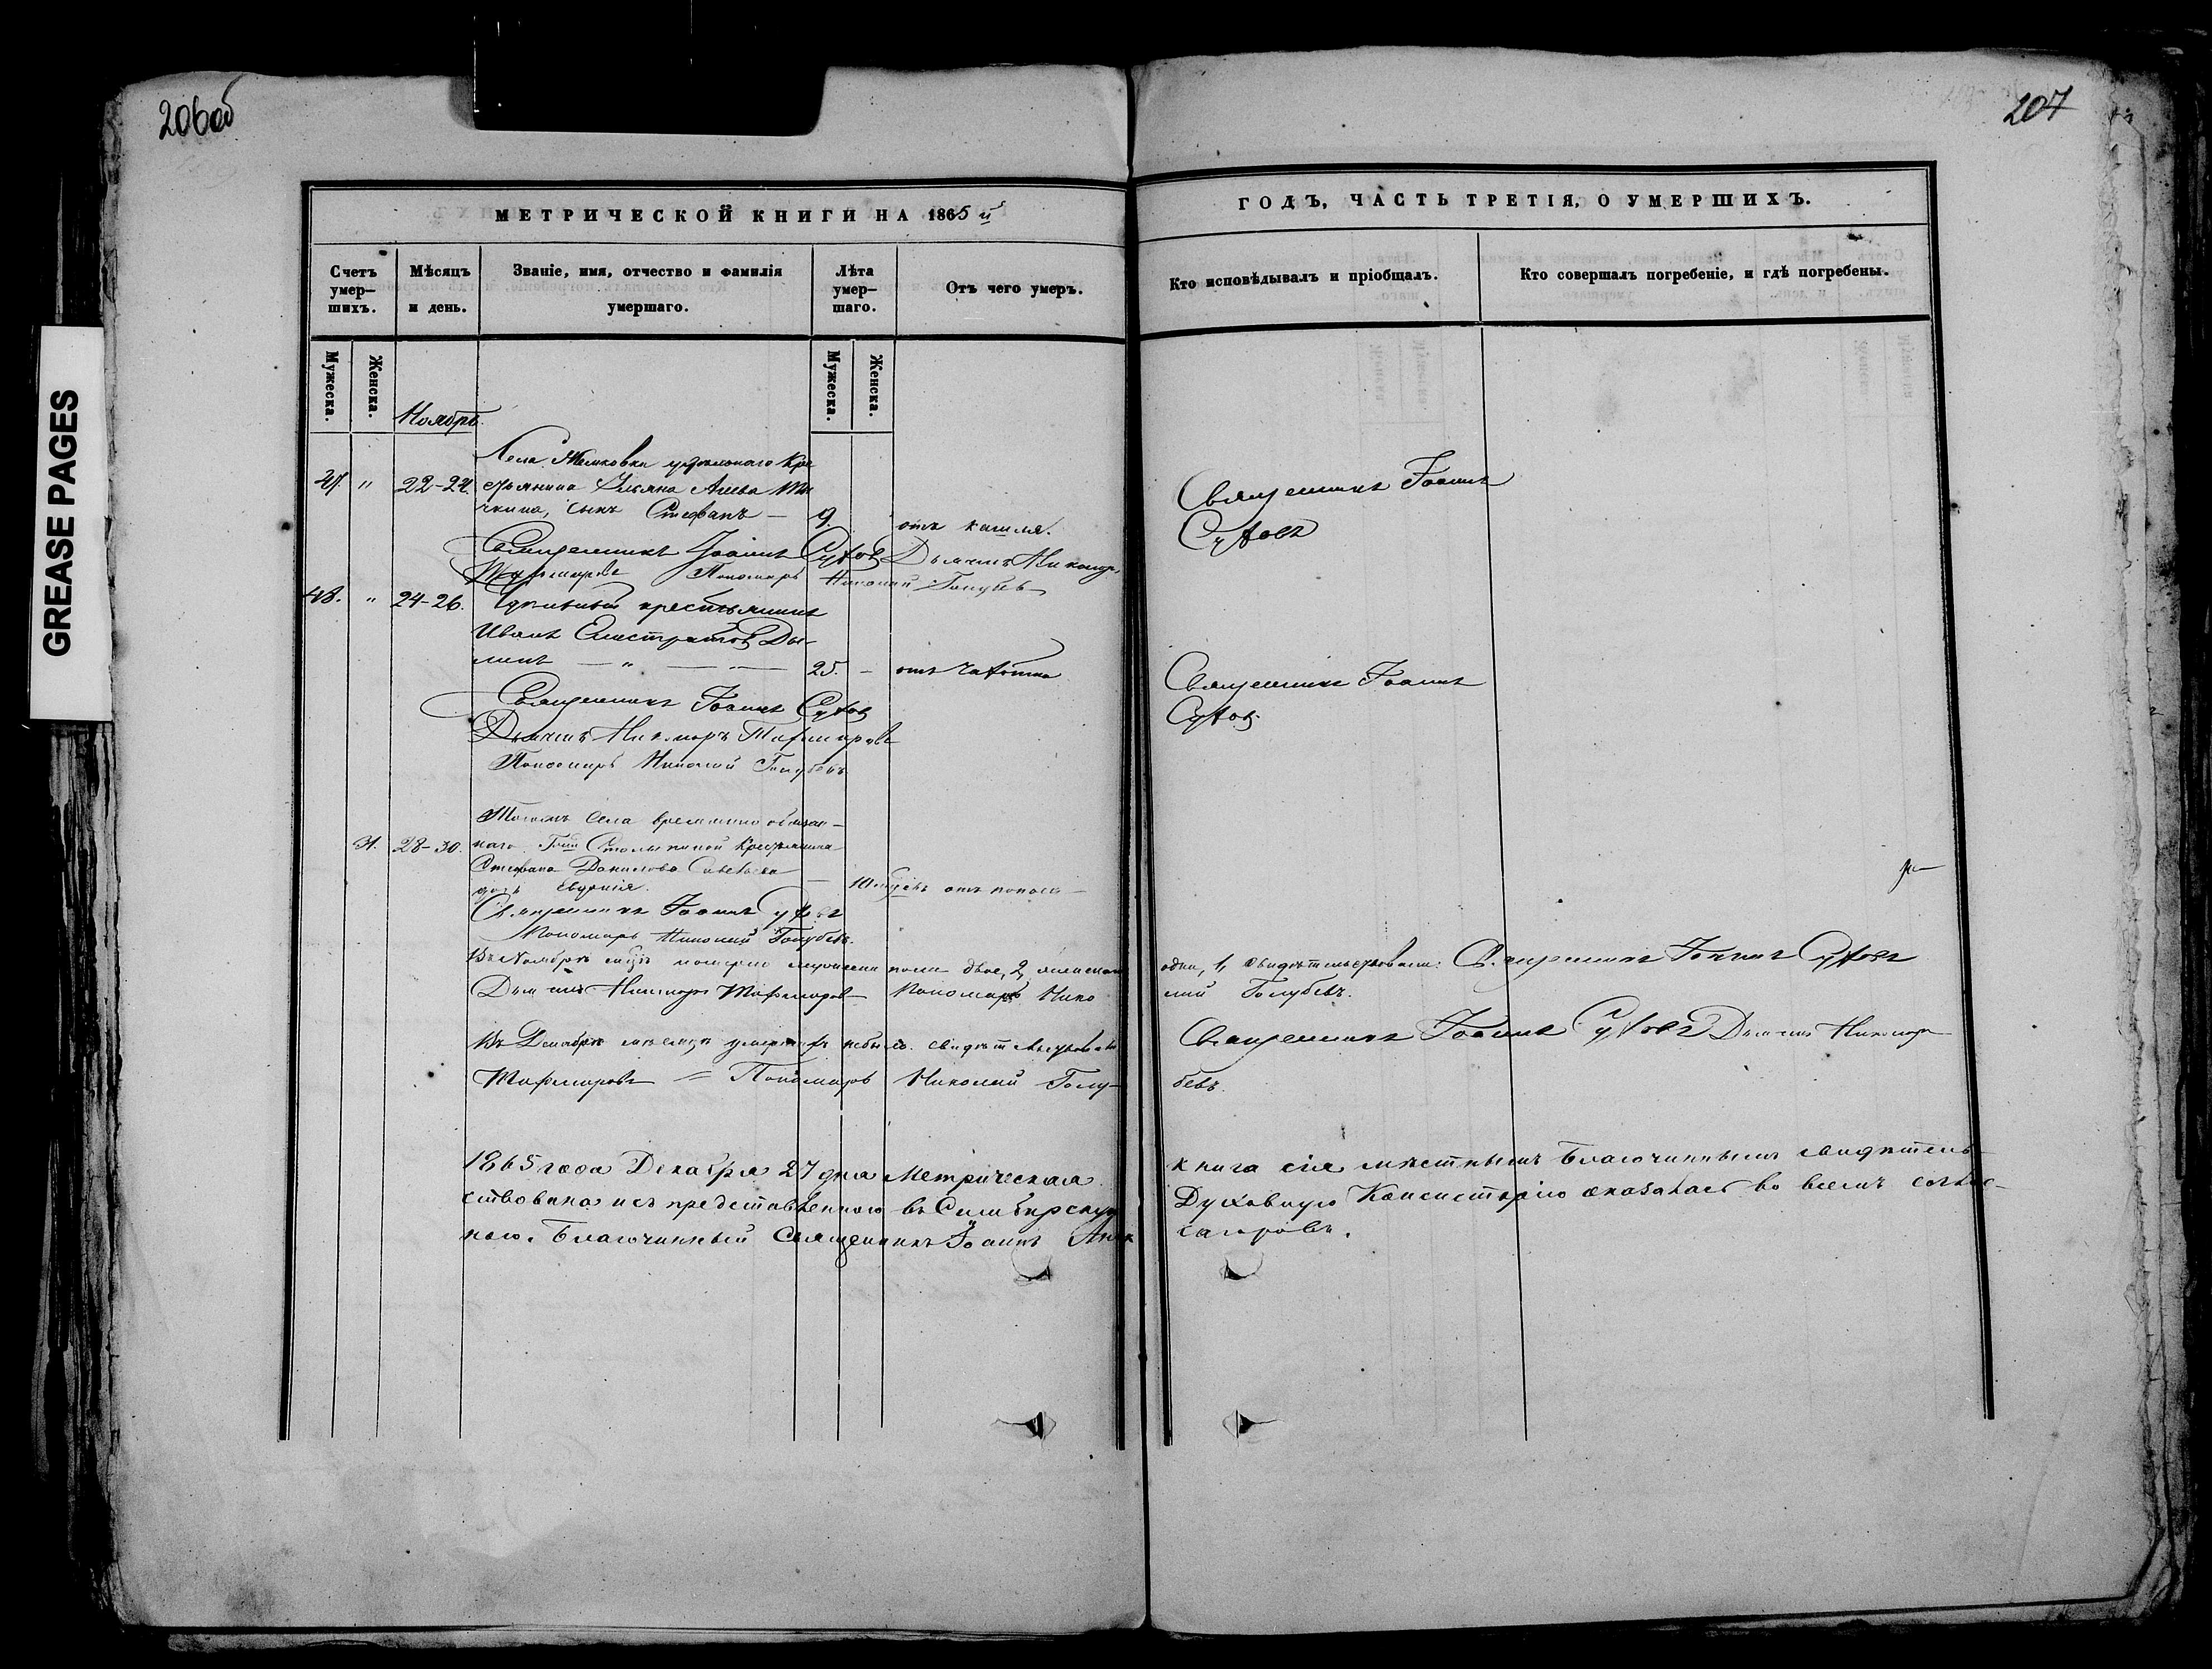 206об
207
GREASE PAGES
МЕТРИЧЕСКОЙ КНИГИ НА 1865й
ГОДЪ, ЧАСТЬ ТРЕТІЯ, О УМЕРШИХЪ.
Счетъ умер-
шихъ.
Мѣсяцъ
и день.
Званіе, имя, отчество и фамилія
умершаго.
Лѣта
умер-
шаго.
Отъ чего умеръ.
Кто исповѣдывалъ и пріобщалъ.
Кто совершалъ погребеніе, и гдѣ погребены.
Мужеска.
Женска.
Мужеска.
Женска.
Ноябрь.
Села удѣльнаго кре
47. " 22-24. стьянина
сынъ Стефанъ — 9. отъ кашля.
Священникъ Іоаннъ
Суховъ
Священникъ Іоаннъ Суховъ Дьячекъ Никаноръ
Пономарь Николай Голубевъ
48. " 24-26. Удѣльный крестьянинъ
Иванъ Елистратовъ Ды-
— " — 25. — отъ чахотки
Священникъ Іоаннъ
Суховъ
Священникъ Іоаннъ Суховъ
Дьячекъ Никаноръ
Пономарь Николай Голубевъ
села временно обязан-
31. 28-30. наго Столыпиной крестьянина
Стефана Данилова
дочь отъ поноса
Священникъ Іоаннъ Суховъ
Пономарь Николай Голубевъ.
Въ Ноябрѣ мцѣ померло мужеска пола двое, 2, женска одна, 1, свидѣтельствовали: Священникъ Іоаннъ Суховъ
Дьячекъ Никаноръ Пономарь Нико лай Голубевъ.
Въ Декабрѣ мѣсяцѣ умершихъ небыло. свидѣтельствовали Священникъ Іоаннъ Суховъ Дьячекъ Никаноръ
Пономарь Николай Голу- бевъ.
1865 года Декабря 27 дня Метрическая книга сія мѣстнымъ Благочиннымъ свидѣтель-
ствована и съ представленною въ Симбирскую Духовную Консисторію оказалась во всемъ соглас-
ною. Благочинный Священникъ Іоаннъ